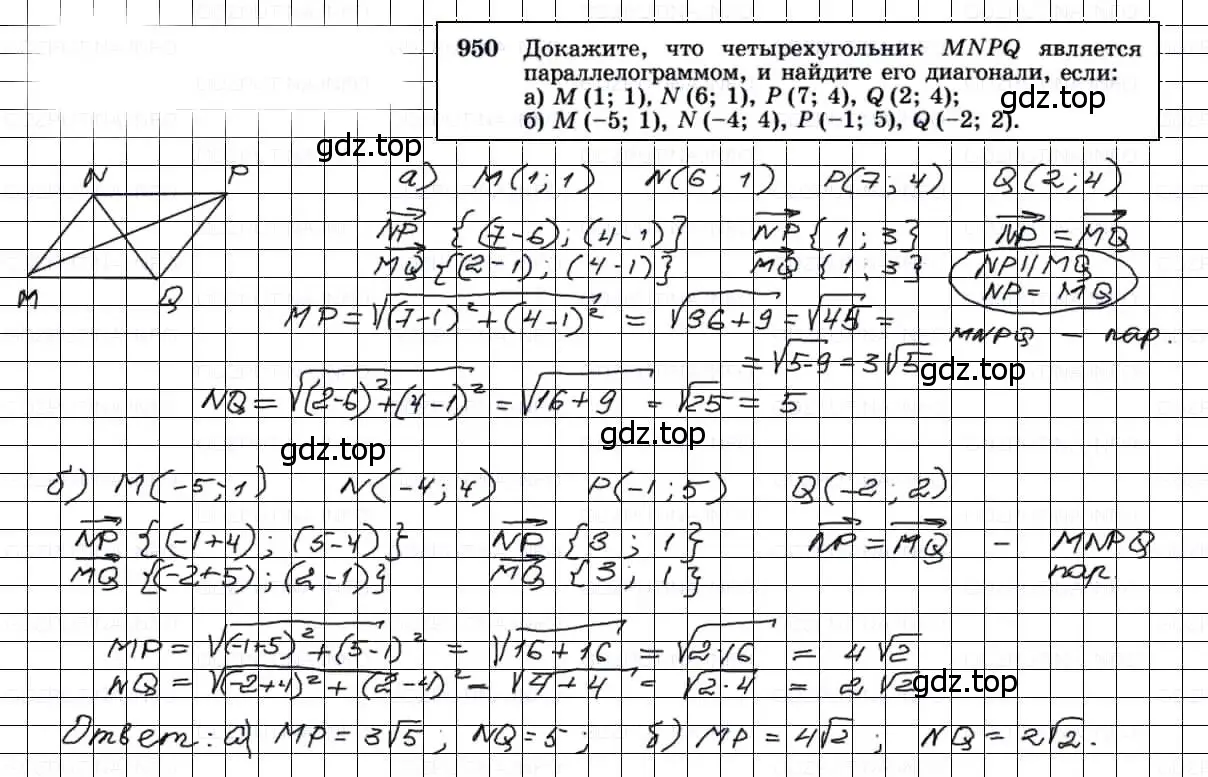 950 Докажите, что четырехугольник MNPQ является
параллелограммом, и найдите его диагонали, если:
а) M (1; 1), N (6; 1), P (7; 4), Q (2; 4);
б) M (−5; 1), N (−4; 4), P (−1; 5), Q (−2; 2).
gdz.top
gdz.top
N P
M Q
а) M(1; 1) N(6; 1) P(7; 4) Q(2; 4)
NP {(7-6); (4-1)} NP {1; 3} NP = MQ
MQ {(2-1); (4-1)} MQ {1; 3} NP || MQ
NP = MQ
MP = √(7-1)² + (4-1)² = √36+9 = √45 = MNPQ – пар.
= √5·9 = 3√5
gdz.top
NQ = √(2-6)² + (4-1)² = √16+9 = √25 = 5
gdz.top
gdz.top
б) M(-5; 1) N(-4; 4) P(-1; 5) Q(-2; 2)
NP {(-1+4); (5-4)} NP {3; 1} NP = MQ – MNPQ
MQ {(-2+5); (2-1)} MQ {3; 1} пар.
MP = √(-1+5)² + (5-1)² = √16+16 = √2·16 = 4√2
NQ = √(-2+4)² + (2-4)² = √4+4 = √2·4 = 2√2
gdz.top
Ответ: а) MP = 3√5; NQ = 5; б) MP = 4√2; NQ = 2√2.